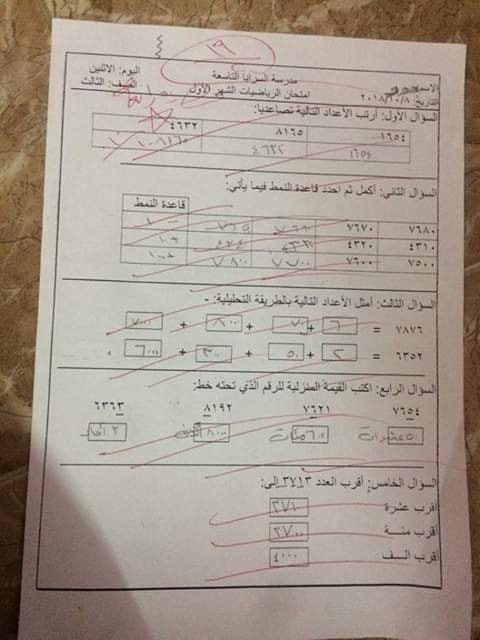 ١٩
مدرسة السرايا التاسعة
اليوم: الاثنين
امتحان الرياضيات الشهر الأول
الصف: الثالث
التاريخ: ٢٠١٨/١٠/٨
السؤال الأول: أرتب الأعداد التالية تصاعديا:
١٦٥٤ ٨١٦٥ ٤٦٣٢
١٦٥٤ ٤٦٣٢
السؤال الثاني: أكمل ثم احدد قاعدة النمط فيما يأتي:
قاعدة النمط
٧٦٨٠ ٧٦٧٠
٤٣١٠ ٤٣٢٠
٧٥٠٠ ٧٦٠٠ ٧٧٠٠ ٧٨٠٠ ١٠٠+
السؤال الثالث: أمثل الأعداد التالية بالطريقة التحليلية: -
٧٨٧٦ = ٦ + ٧٠ + ٨٠٠ + ٧٠٠٠
٦٣٥٢ = ٢ + ٥٠ + ٣٠٠ + ٦٠٠٠
السؤال الرابع: اكتب القيمة المنزلية للرقم الذي تحته خط:
٧٦٥٤ ٧٦٢١ ٨١٩٢ ٦٣٦٣
٥٠ عشرات ٦٠٠ مئات ٨٠٠٠ ٣ آحاد
السؤال الخامس: أقرب العدد ٣٧١٣ إلى:
أقرب عشرة ٣٧١٠
أقرب مئة ٣٧٠٠
أقرب الف ٤٠٠٠